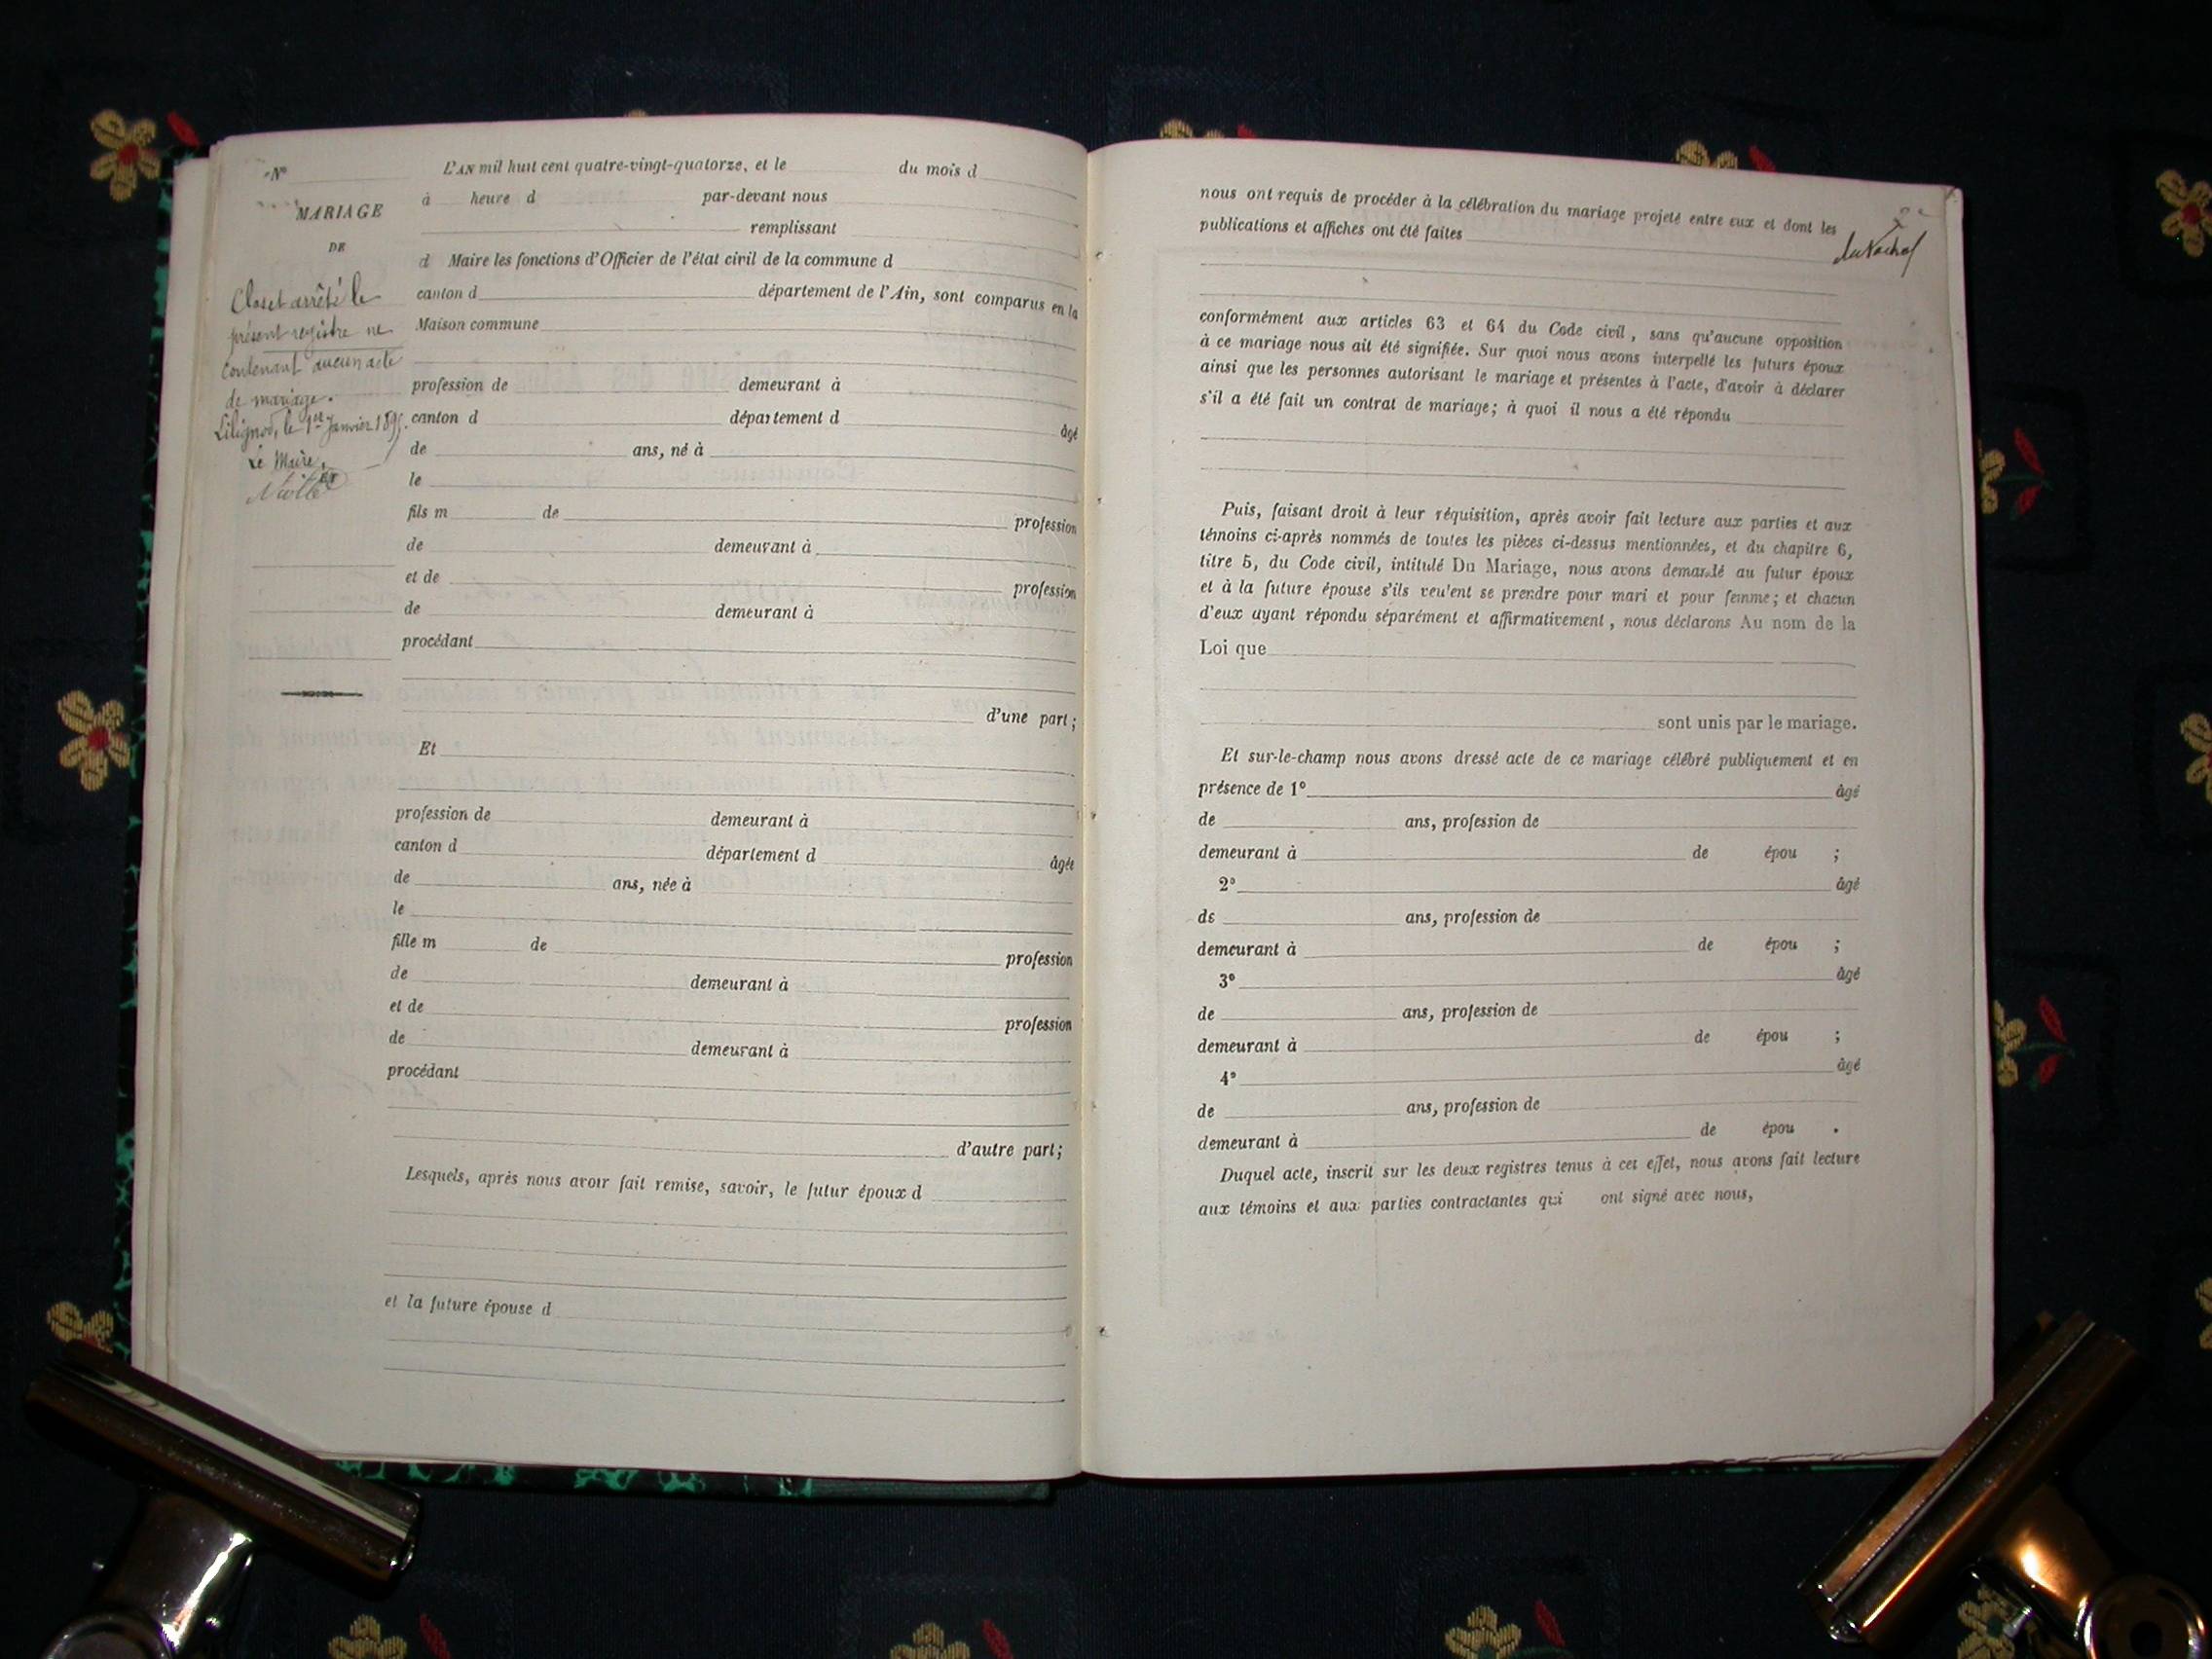 N°
MARIAGE
DE
Clos et arrêté le
présent registre ne
contenant aucun acte
de mariage.
Lilignod, le 1er Janvier 1895.
Le Maire,
L'AN mil huit cent quatre-vingt-quatorze, et le du mois d
à heure d par-devant nous
remplissant
d Maire les fonctions d'Officier de l'état civil de la commune d
canton d département de l'Ain, sont comparus en la
Maison commune
profession de demeurant à
canton d département d âgé
de ans, né à
le
fils m de profession
de demeurant à
et de profession
de demeurant à
procédant
d'une part;
Et
profession de demeurant à
canton d département d âgée
de ans, née à
le
fille m de profession
de demeurant à
et de profession
de demeurant à
procédant
d'autre part;
Lesquels, après nous avoir fait remise, savoir, le futur époux d
et la future épouse d
nous ont requis de procéder à la célébration du mariage projeté entre eux et dont les
publications et affiches ont été faites
conformément aux articles 63 et 64 du Code civil, sans qu'aucune opposition
à ce mariage nous ait été signifiée. Sur quoi nous avons interpellé les futurs époux
ainsi que les personnes autorisant le mariage et présentes à l'acte, d'avoir à déclarer
s'il a été fait un contrat de mariage; à quoi il nous a été répondu
Puis, faisant droit à leur réquisition, après avoir fait lecture aux parties et aux
témoins ci-après nommés de toutes les pièces ci-dessus mentionnées, et du chapitre 6,
titre 5, du Code civil, intitulé Du Mariage, nous avons demandé au futur époux
et à la future épouse s'ils veulent se prendre pour mari et pour femme; et chacun
d'eux ayant répondu séparément et affirmativement, nous déclarons Au nom de la
Loi que
sont unis par le mariage.
Et sur-le-champ nous avons dressé acte de ce mariage célébré publiquement et en
présence de 1° âgé
de ans, profession de
demeurant à de épou ;
2° âgé
de ans, profession de
demeurant à de épou ;
3° âgé
de ans, profession de
demeurant à de épou ;
4° âgé
de ans, profession de
demeurant à de épou .
Duquel acte, inscrit sur les deux registres tenus à cet effet, nous avons fait lecture
aux témoins et aux parties contractantes qui ont signé avec nous,